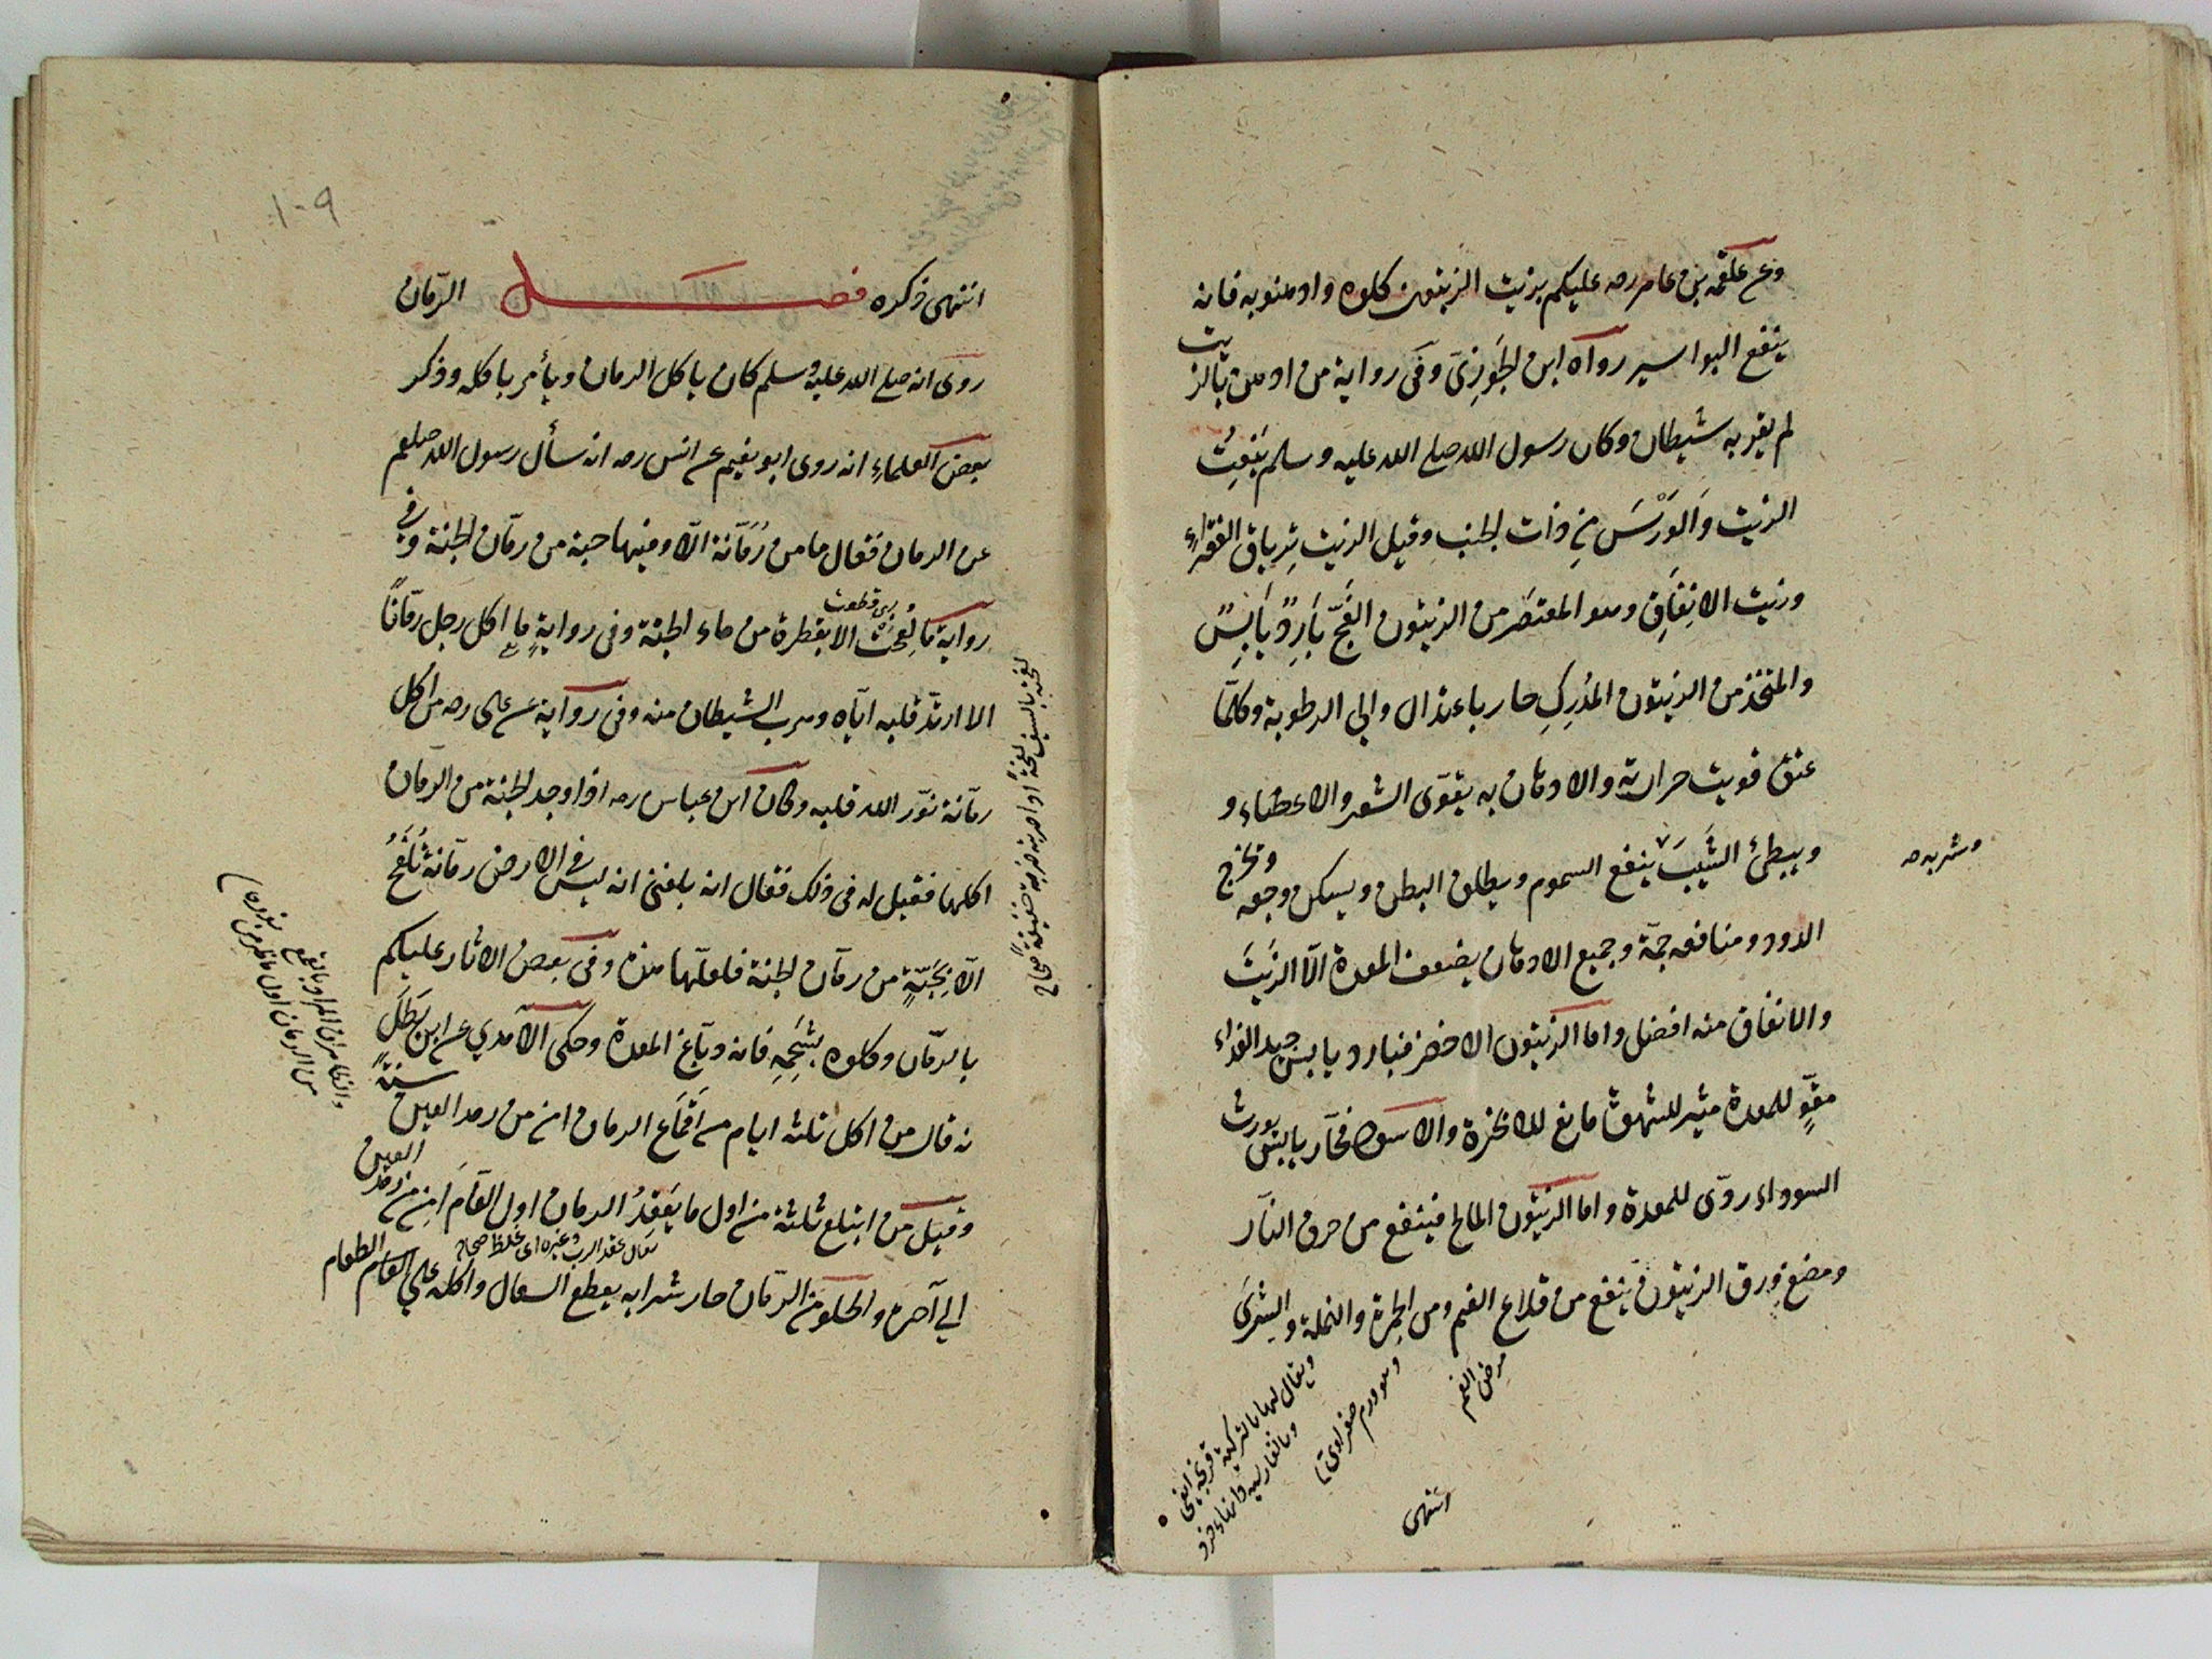 وعن علقمه بن عامر رصه عليكم بزيت الزيتون كلوه وادهنوبه فانه
ينفع البواسير رواه ابن الجَوزِىّ وفى رواية من ادهن بالزيت
لم يقربه شيطان وكان رسول الله صلى الله عليه وسلم يَنعِتُ
الزيت وَالوَرْسَ مِن ذات الجنب وقيل الزيت تِرياق الفقراء
وزيت الانفاقِ وهو المعتصَر من الزيتون الفَجّ بَارِدٌ يَابِسٌ
والمتخذ من الزيتون المُدرِكِ حار باعتدال والى الرطوبة وكلّما
عتق قويت حرارته والادهان به يقوّى الشعر والاعضاء و
ويبطئ الشَيبَ ينفع السموم ويطلق البطن ويسكن وجعه وتخرج
وشربه صح
الدود ومنافعه جمّة وجميع الادهان يضعف المعدة الّا الزَيتَ
والانفاق منه افضل واما الزيتون الاخضر فبارد يابس جيد الغذاء
مقوٍّ للمعدة مثير للشهوة مانع للابخرة والاسود فحار يابس يورث
السوداء ردّى للمعدة واما الزيتون المالح فينفع من حرق النار
ومضغ ورق الزيتون ينفع من قلاع الفم ومن الجمرة والنملة والشِرَى
مرض الفم
وهو ورم صفراوى
ويقال لها بالتركية
وبالفارسية
انتهى
١٠٩
انتهى ذكره فصل الرّمان
روى انه صلى الله عليه وسلم كان ياكل الرمان ويأمر باكله وذكر
بعض العلماءِ انه روى ابو نعيم عن انس رصه انه سأل رسول الله صلعم
عن الرمان فقال ما من رُمّانة الّا وفيها حبة من رمّان الجنة وفى
رواية ما لُقِحَت الا بقطرة من ماء الجنة وفى روايةٍ ما اكل رجل رمّاناً
الا ارتدّ قلبه اياه وهرب الشيطان منه وفى رواية عن على رصه من اكل
رمّانة نوّر الله قلبه وكان ابن عباس رصه اذا وجد الحبة من الرمان
اكلها فقيل له فى ذلك فقال انه بلغنى انه ليس فى الارض رمّانة تُلقَحُ
الّا بِحَبّةٍ من رمّان الجنة فلعلّها هذه وفى بعض الاثار عليكم
بالرمّان وكلوه بشَحِمِهِ فانه دبّاغ المعدة وحكى الآمدي عن ابن بَطَل
نه قال من اكل ثلثة ايام من اَقمَاع الرمان امن من رمد العين سنةً
وقيل من ابتلع ثلثة من اول ما يَعقِدُ الرمان اول العام اَمِن من رمد العين
يقال عقد الرب وغيره اى غلظ صحاح
الى آخره والحلو من الرمّان حار شرابه يقطع السعال واكله على الطعام
لفحته بالسيف لفحةً اذا ضربته ضربة خفيفة صحاح